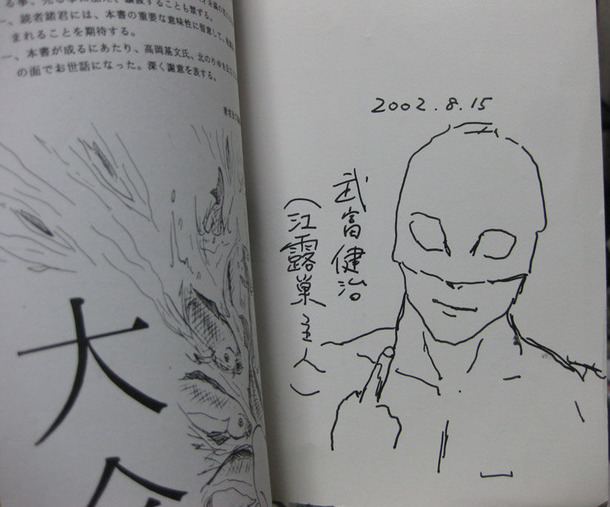 一、読者諸君には、本書の重要な意味性に留意して、
まれることを期待する。
一、本書が成るにあたり、高岡基文氏、北のり
の面でお世話になった。深く謝意を表する。
大
2002.8.15
武富健治
(江露巣主人)